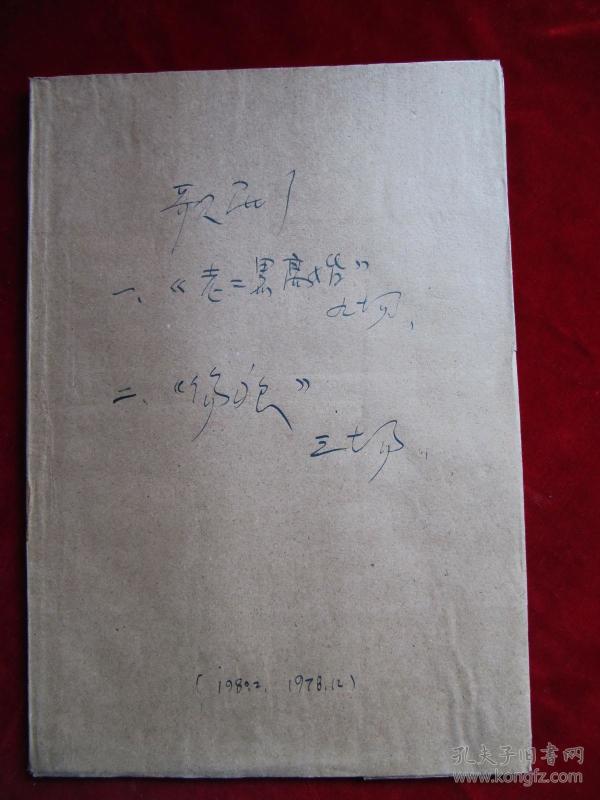 歌剧
一、《老二黑离婚》
九场、
二、《伤痕》
三场、
(1980.2. 1978.12)
孔夫子旧书网
www.kongfz.com